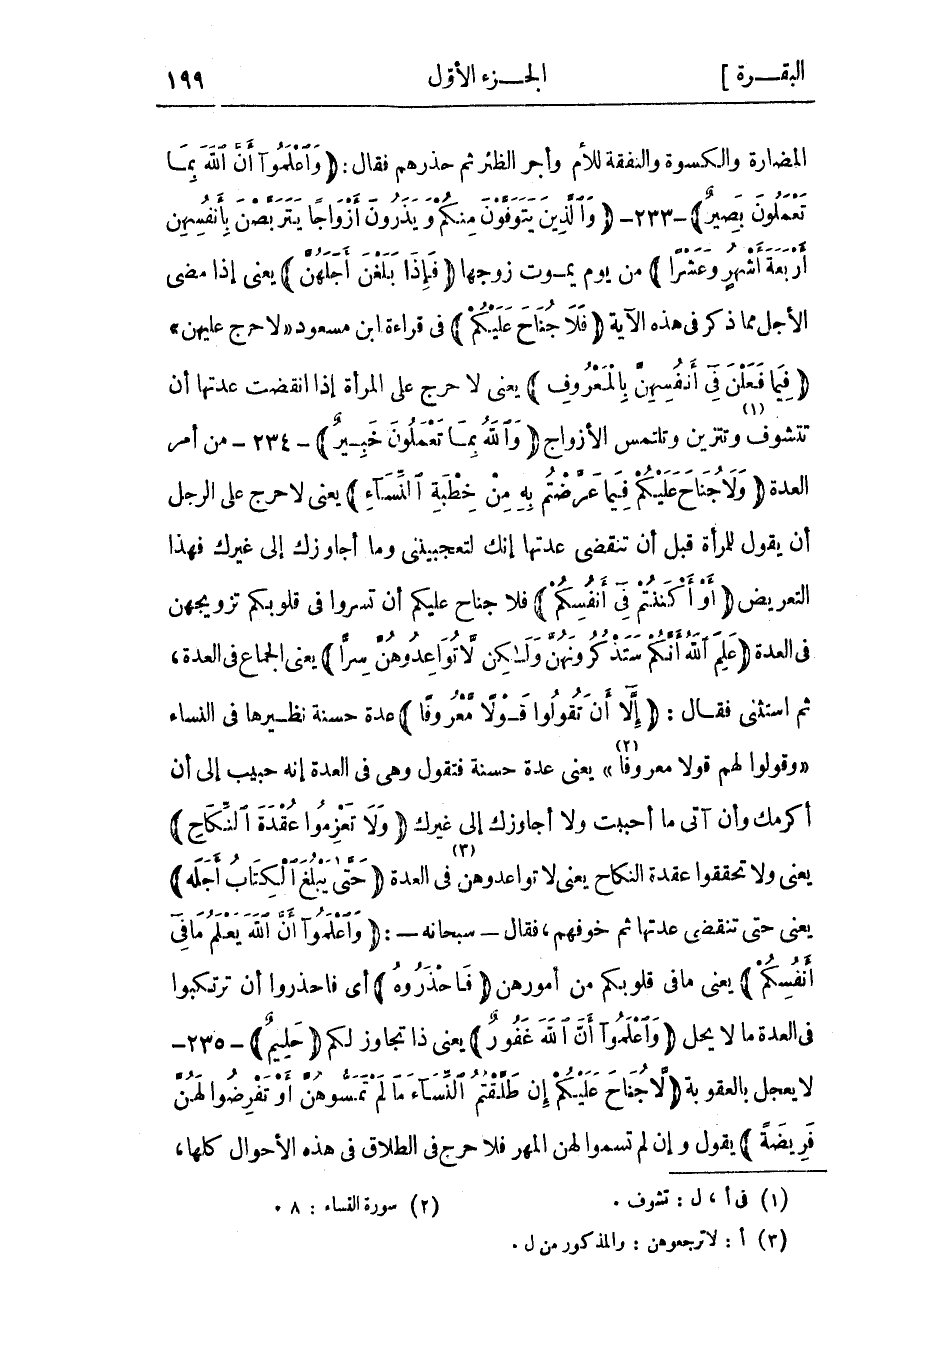 البقـــرة ]
الجـــزء الأول
١٩٩
المضارة والكسوة والنفقة للأم وأجر الظئر ثم حذرهم فقال : ﴿ وَٱعْلَمُوٓا أَنَّ ٱللَّهَ بِمَـا
تَعْمَلُونَ بَصِيرٌ ﴾ -٢٣٣- ﴿ وَٱلَّذِينَ يُتَوَفَّوْنَ مِنكُمْ وَيَذَرُونَ أَزْوَاجًا يَتَرَبَّصْنَ بِأَنفُسِهِنَّ
أَرْبَعَةَ أَشْهُرٍ وَعَشْرًا ﴾ من يوم يمــوت زوجها ﴿ فَإِذَا بَلَغْنَ أَجَلَهُنَّ ﴾ يعنى إذا مضى
الأجل مما ذكر فى هذه الآية ﴿ فَلَا جُنَاحَ عَلَيْكُمْ ﴾ فى قراءة ابن مسعود «لا حرج عليهن»
﴿ فِيمَا فَعَلْنَ فِىٓ أَنفُسِهِنَّ بِالْمَعْرُوفِ ﴾ يعنى لا حرج على المرأة إذا انقضت عدتها أن
تتشوف (١) وتتزين وتلتمس الأزواج ﴿ وَٱللَّهُ بِمَـا تَعْمَلُونَ خَبِـيرٌ ﴾ - ٢٣٤ - من أمر
العدة ﴿ وَلَا جُنَاحَ عَلَيْكُمْ فِيمَا عَرَّضْتُم بِهِ مِنْ خِطْبَةِ ٱلنِّسَآءِ ﴾ يعنى لا حرج على الرجل
أن يقول للمرأة قبل أن تنقضى عدتها إنك لتعجبيننى وما أجاوزك إلى غيرك فهذا
التعريض ﴿ أَوْ أَكْنَنتُمْ فِىٓ أَنفُسِكُمْ ﴾ فلا جناح عليكم أن تسروا فى قلوبكم تزويجهن
فى العدة ﴿ عَلِمَ ٱللَّهُ أَنَّكُمْ سَتَذْكُرُونَهُنَّ وَلَـٰكِن لَّا تُوَاعِدُوهُنَّ سِرًّا ﴾ يعنى الجماع فى العدة ،
ثم استثنى فقــال : ﴿ إِلَّآ أَن تَقُولُوا قَــوْلًا مَّعْرُوفًا ﴾ عدة حسنة نظــيرها فى النساء
«وقولوا لهم قولا معروفا (٢) » يعنى عدة حسنة فتقول وهى فى العدة إنه حبيب إلى أن
أكرمك وأن آتى ما أحببت ولا أجاوزك إلى غيرك ﴿ وَلَا تَعْزِمُوا عُقْدَةَ ٱلنِّكَاحِ ﴾
يعنى ولا تحققوا عقدة النكاح يعنى لا تواعدوهن (٣) فى العدة ﴿ حَتَّىٰ يَبْلُغَ ٱلْكِتَابُ أَجَلَهُ ﴾
يعنى حتى تنقضى عدتها ثم خوفهم ، فقال — سبحانه — : ﴿ وَٱعْلَمُوٓا أَنَّ ٱللَّهَ يَعْلَمُ مَا فِىٓ
أَنفُسِكُمْ ﴾ يعنى مافى قلوبكم من أمورهن ﴿ فَـاحْذَرُوهُ ﴾ أى فاحذروا أن ترتكبوا
فى العدة ما لا يحل ﴿ وَٱعْلَمُوٓا أَنَّ ٱللَّهَ غَفُورٌ ﴾ يعنى ذا تجاوز لكم ﴿ حَلِيمٌ ﴾ - ٢٣٥ -
لا يعجل بالعقوبة ﴿ لَّا جُنَاحَ عَلَيْكُمْ إِن طَلَّقْتُمُ ٱلنِّسَآءَ مَا لَمْ تَمَسُّوهُنَّ أَوْ تَفْرِضُوا لَهُنَّ
فَرِيضَةً ﴾ يقول وإن لم تسموا لهن المهر فلا حرج فى الطلاق فى هذه الأحوال كلها ،
(١) فى أ ، ل : تشوف .
(٢) سورة النساء : ٨ .
(٣) أ : لا ترجعوهن : والمذكور من ل .